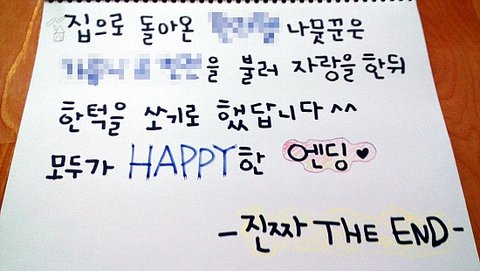 집으로 돌아온 나뭇꾼은
을 불러 자랑을 한뒤
한턱을 쏘기로 했답니다^^
모두가 HAPPY한 엔딩♥
-진짜 THE END-